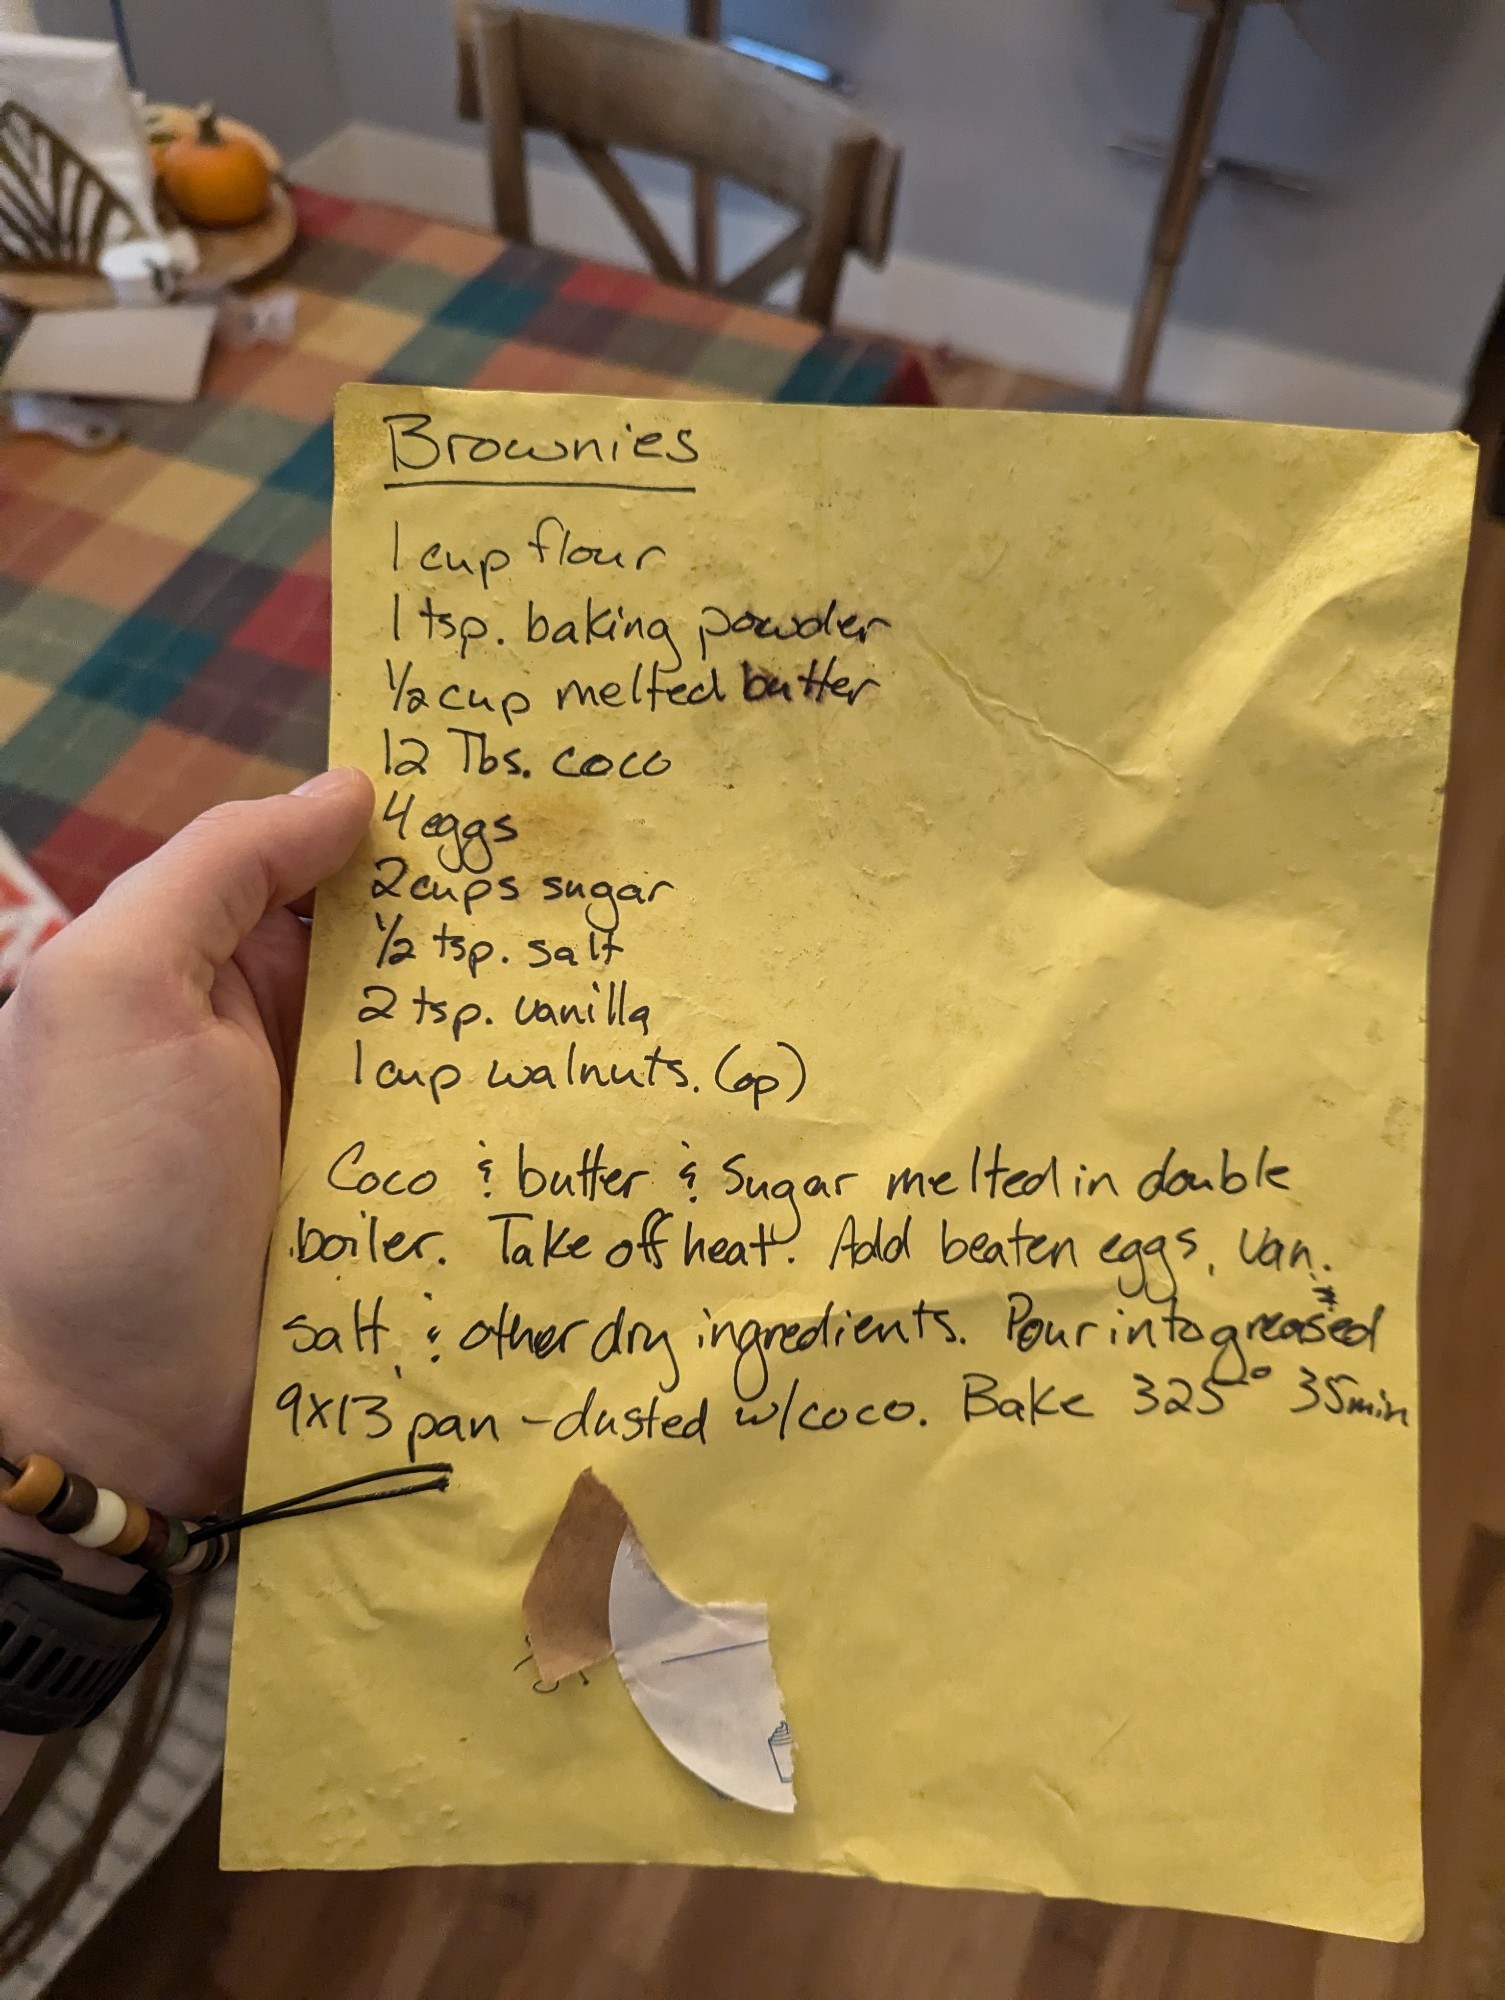 Brownies
1 cup flour
1 tsp. baking powder
1/2 cup melted butter
12 Tbs. coco
4 eggs
2 cups sugar
1/2 tsp. salt
2 tsp. vanilla
1 cup walnuts. (op)
Coco & butter & Sugar melted in double
boiler. Take off heat. Add beaten eggs, van.
salt, & other dry ingredients. Pour into greased
9x13 pan - dusted w/coco. Bake 325° 35min